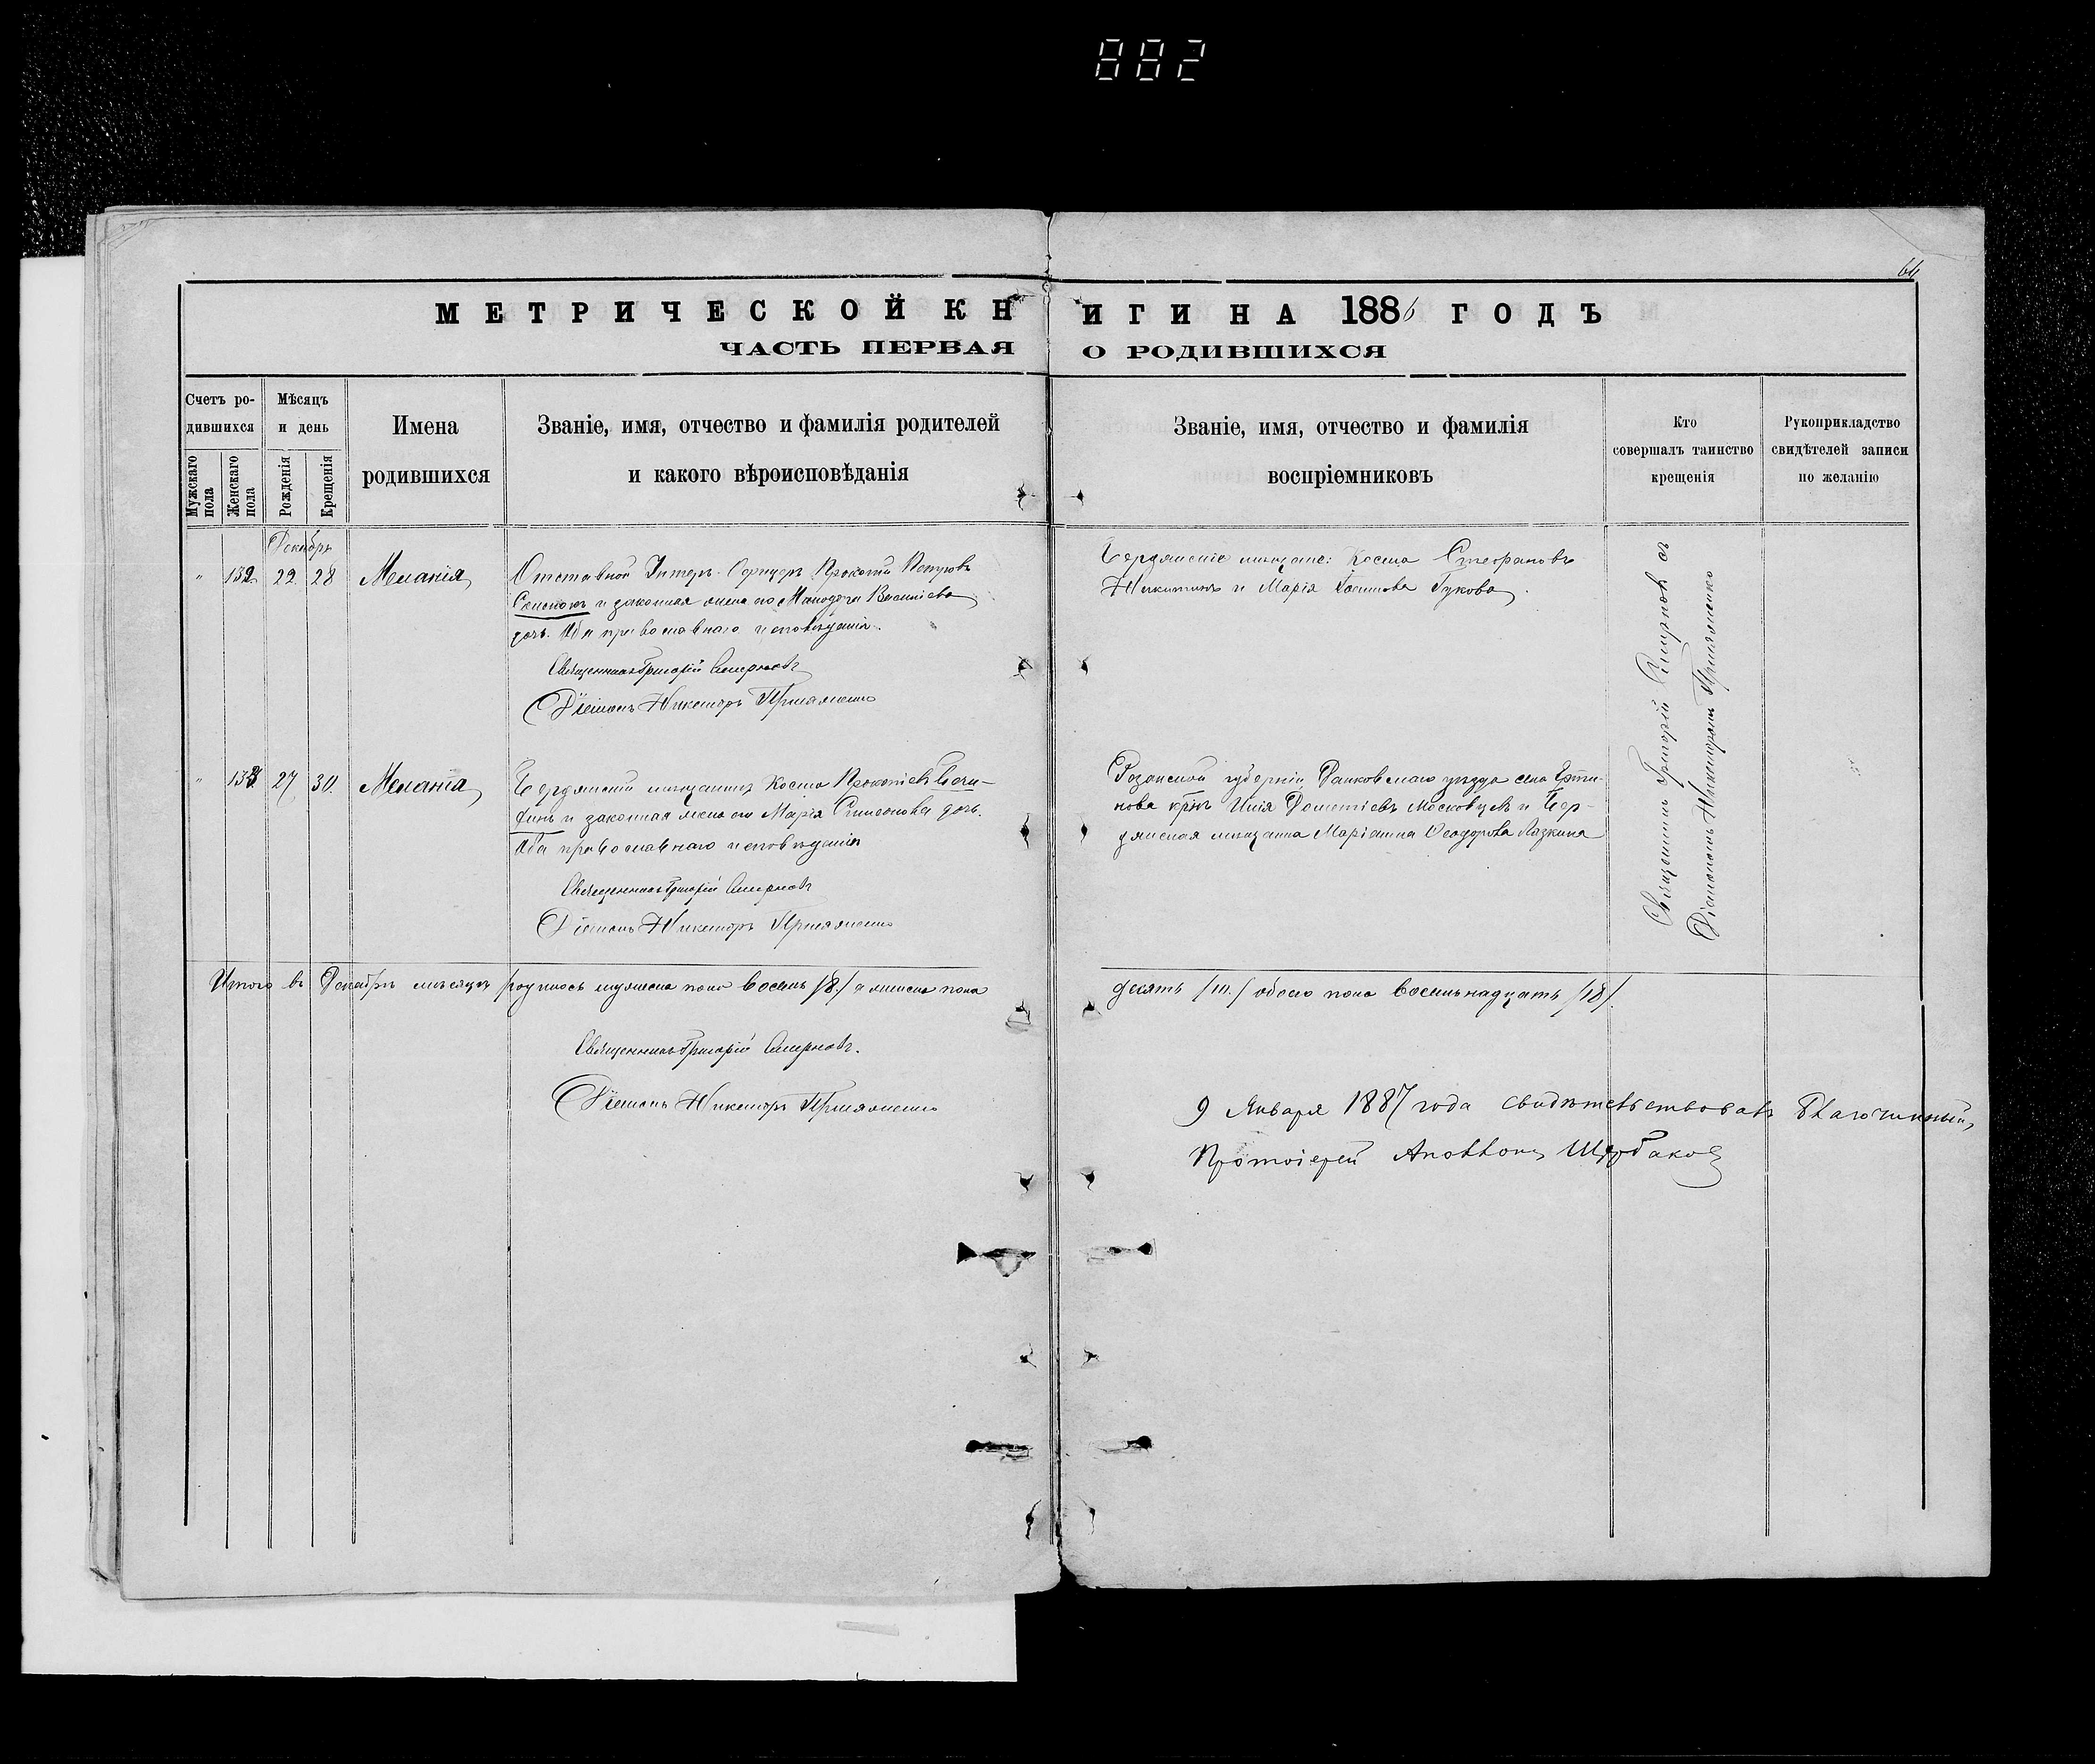 882
64
МЕТРИЧЕСКОЙ КНИГИ НА 1886 ГОДЪ
ЧАСТЬ ПЕРВАЯ О РОДИВШИХСЯ
Счетъ ро-
дившихся
Мужскаго пола
Женскаго пола
Мѣсяцъ
и день
Рожденія
Крещенія
Имена
родившихся
Званіе, имя, отчество и фамилія родителей
и какого вѣроисповѣданія
Званіе, имя, отчество и фамилія
воспріемниковъ
Кто
совершалъ таинство
крещенія
Рукоприкладство
свидѣтелей записи
по желанію
Декабрь
" 132 22 28 Меланія
Отставной Унтеръ-Офицеръ Прокопій Петровъ
и законная жена его Васильева
дочь. Оба православнаго исповѣданія.
Священникъ Григорій Смирновъ
Діаконъ Никаноръ
Бердянскіе мѣщане: Косма Стефановъ
Никитинъ и Марія Гукова.
Священникъ Григорій Смирновъ съ
Діакономъ Никаноромъ
" 133 27 30. Меланія
Бердянскій мѣщанинъ Косма Прокопіевъ
и законная жена его Марія Симеонова дочь.
Оба православнаго исповѣданія
Священникъ Григорій Смирновъ
Діаконъ Никаноръ
Рязанской губерніи Данковскаго уѣзда села
нова Илія Дометіевъ Московцевъ и Бер-
дянская мѣщанка Маріанна Ѳеодорова Лазкина
Итого въ Декабрѣ мѣсяцѣ родилось мужеска пола восемь /8./ а женска пола
десять /10./ обоего пола восемьнадцать /18/.
Священникъ Григорій Смирновъ.
Діаконъ Никаноръ
9 Января 1887 года свидѣтельствовалъ Благочинный,
Протоіерей Аполлонъ Щербаковъ